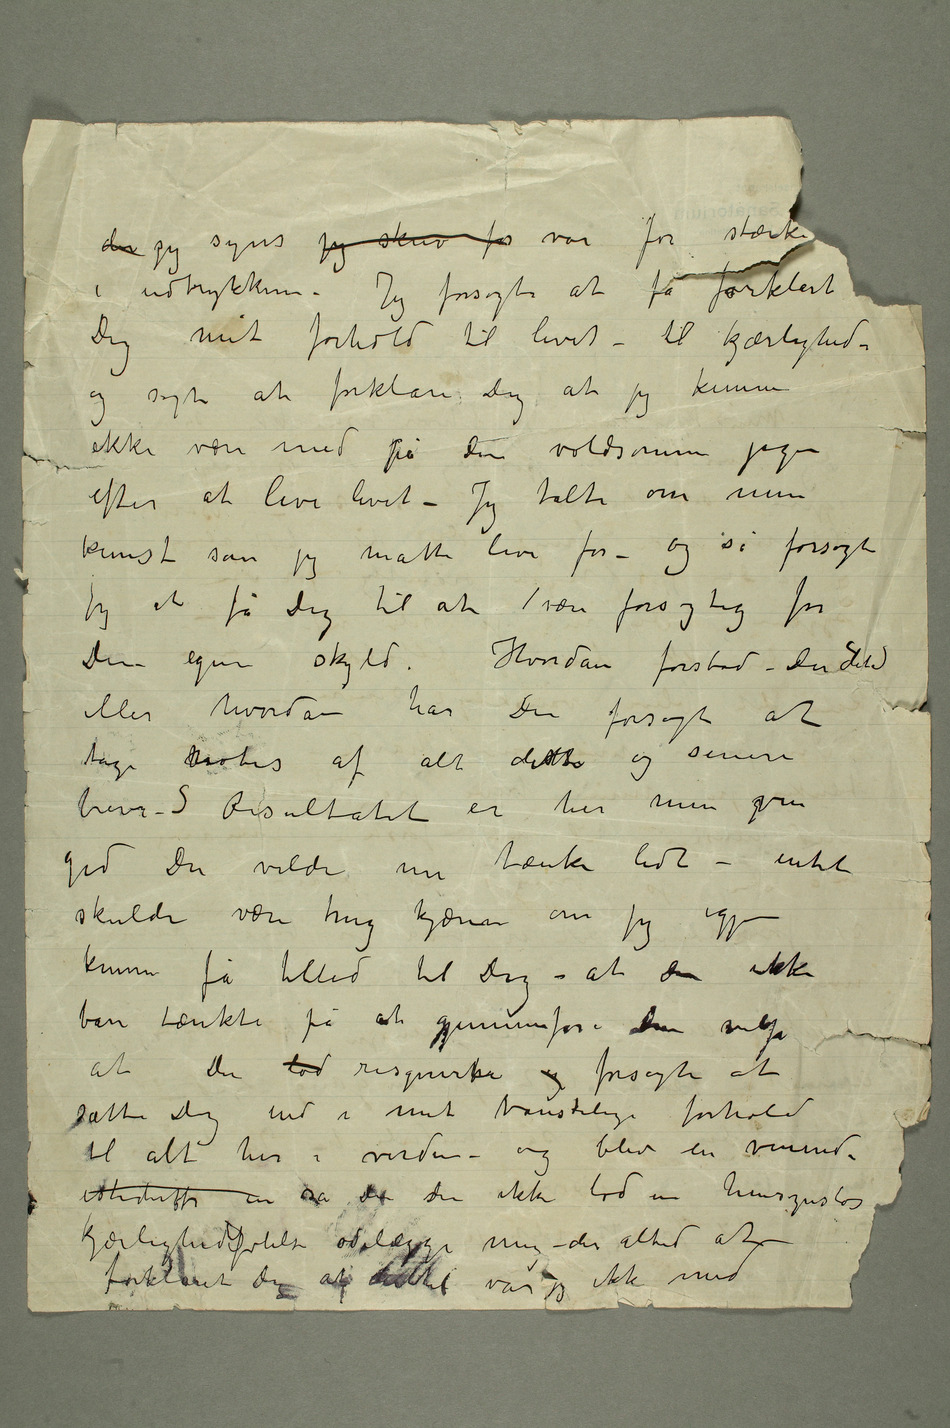 der jeg synes jeg skrev for var for stærke
i udtrykkene – Jeg forsøgte at få forklart
Dig mit forhold til livet – til kjærlighed –
og søgte at forklare Dig at jeg kunne
ikke være med på den voldsomme jagen
efter at leve livet – Jeg talte om min
kunst som jeg måtte leve for – og så forsøgte
jeg at få Dig til at være forsigtig for
Din egen skyld. Hvordan forstod Du det
eller hvordan har Du forsøgt at
tage notis af alt dette og senere
breve – Resultatet er her men
gid Du vilde nu tænke lidt – intet
skulde være mig kjærere om jeg igjen
kunne få tillid til Dig – at Du ikke
bare tænkte på at gjennemføre Din vilje
at Du lod resignerte og forsøgte at
sætte Dig ind i mit vanskelige forhold
til alt her i verden – og blev en veninde
istedetfor en så Du ikke lod en hensynsløs
kjærlighedsfølelse ødelægge mig – der altid at
forklaret Dig at dertil var jeg ikke med
Sanatorium